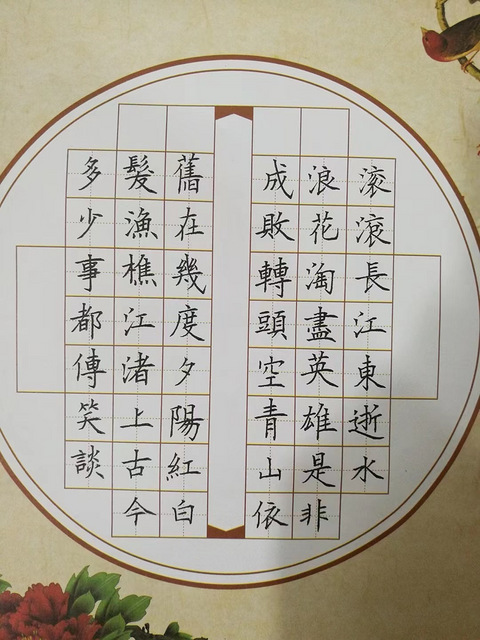 滚滚長江東逝水
浪花淘盡英雄是非
成敗轉頭空青山依
舊在幾度夕陽紅白
髮漁樵江渚上古今
多少事都傳笑談